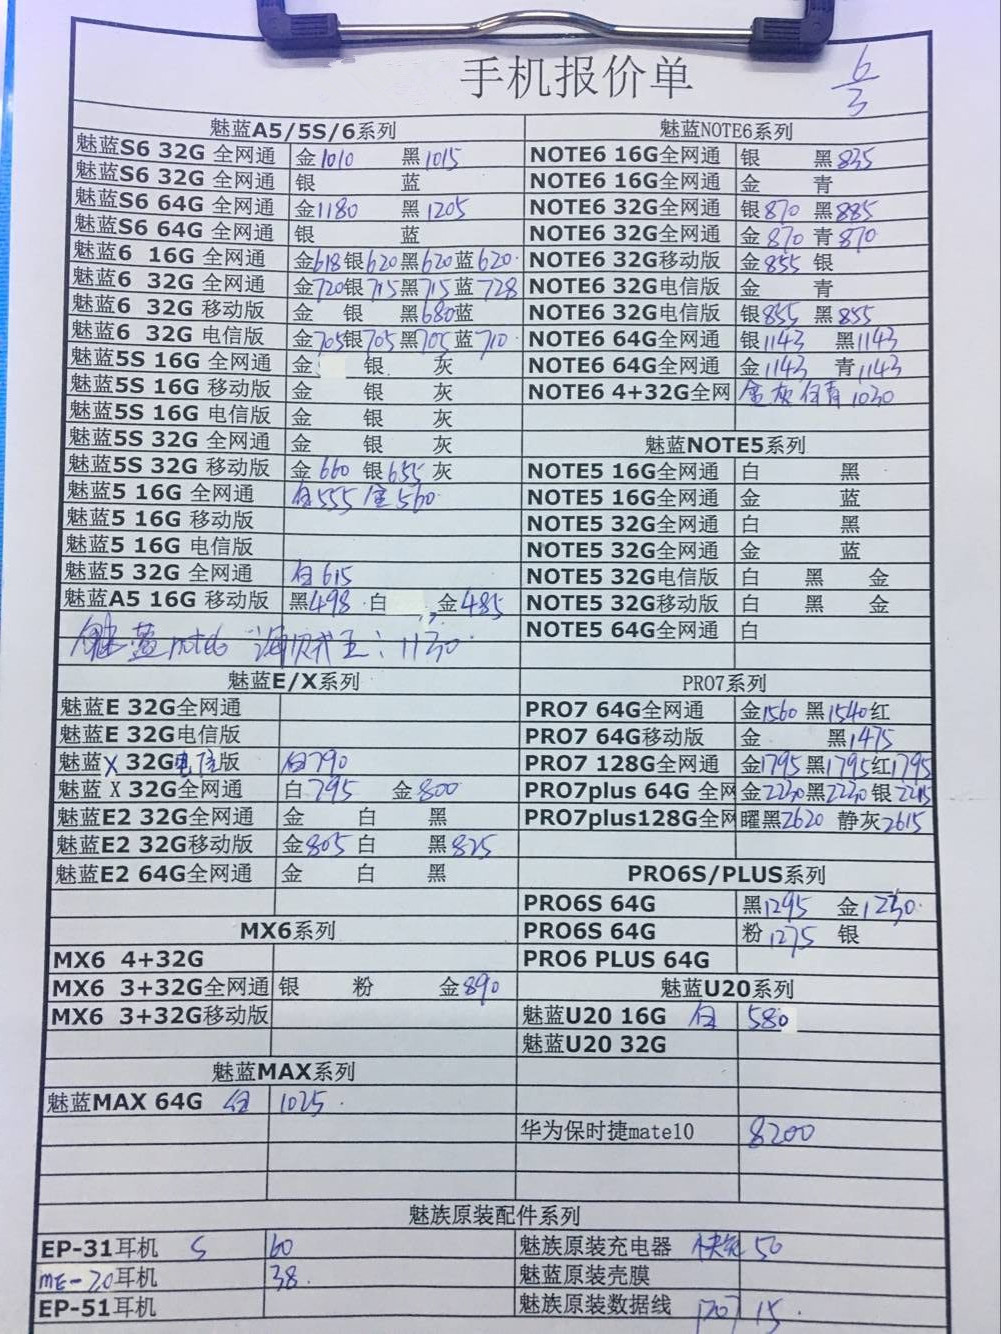 手机报价单
6/3
魅蓝A5/5S/6系列
魅蓝S6 32G 全网通 金1010 黑1015
魅蓝S6 32G 全网通 银 蓝
魅蓝S6 64G 全网通 金1180 黑1205
魅蓝S6 64G 全网通 银 蓝
魅蓝6 16G 全网通 金618银620黑620蓝620
魅蓝6 32G 全网通 金720银715黑715蓝728
魅蓝6 32G 移动版 金 银 黑680蓝
魅蓝6 32G 电信版 金705银705黑705蓝710
魅蓝5S 16G 全网通 金 银 灰
魅蓝5S 16G 移动版 金 银 灰
魅蓝5S 16G 电信版 金 银 灰
魅蓝5S 32G 全网通 金 银 灰
魅蓝5S 32G 移动版 金660 银655 灰
魅蓝5 16G 全网通 白555 金560
魅蓝5 16G 移动版
魅蓝5 16G 电信版
魅蓝5 32G 全网通 白615
魅蓝A5 16G 移动版 黑498 白 金485
魅蓝note6 海贼王: 1130
魅蓝E/X系列
魅蓝E 32G全网通
魅蓝E 32G电信版
魅蓝X 32G电信版 白790
魅蓝X 32G全网通 白795 金800
魅蓝E2 32G全网通 金 白 黑
魅蓝E2 32G移动版 金805 白 黑825
魅蓝E2 64G全网通 金 白 黑
MX6系列
MX6 4+32G
MX6 3+32G全网通 银 粉 金890
MX6 3+32G移动版
魅蓝MAX系列
魅蓝MAX 64G 白 1025
魅蓝NOTE6系列
NOTE6 16G全网通 银 黑835
NOTE6 16G全网通 金 青
NOTE6 32G全网通 银870 黑885
NOTE6 32G全网通 金870 青870
NOTE6 32G移动版 金855 银
NOTE6 32G电信版 金 青
NOTE6 32G电信版 银855 黑855
NOTE6 64G全网通 银1143 黑1143
NOTE6 64G全网通 金1143 青1143
NOTE6 4+32G全网 金灰白青1030
魅蓝NOTE5系列
NOTE5 16G全网通 白 黑
NOTE5 16G全网通 金 蓝
NOTE5 32G全网通 白 黑
NOTE5 32G全网通 金 蓝
NOTE5 32G电信版 白 黑 金
NOTE5 32G移动版 白 黑 金
NOTE5 64G全网通 白
PRO7系列
PRO7 64G全网通 金1560 黑1540红
PRO7 64G移动版 金 黑1475
PRO7 128G全网通 金1795黑1795红1795
PRO7plus 64G 全网 金2230黑2230银2215
PRO7plus128G全网 曜黑2620 静灰2615
PRO6S/PLUS系列
PRO6S 64G 黑1295 金1230
PRO6S 64G 粉1275 银
PRO6 PLUS 64G
魅蓝U20系列
魅蓝U20 16G 白 580
魅蓝U20 32G
华为保时捷mate10 8200
魅族原装配件系列
EP-31耳机 S 60
ME-20耳机 38
EP-51耳机
魅族原装充电器 快充 50
魅蓝原装壳膜
魅族原装数据线 15